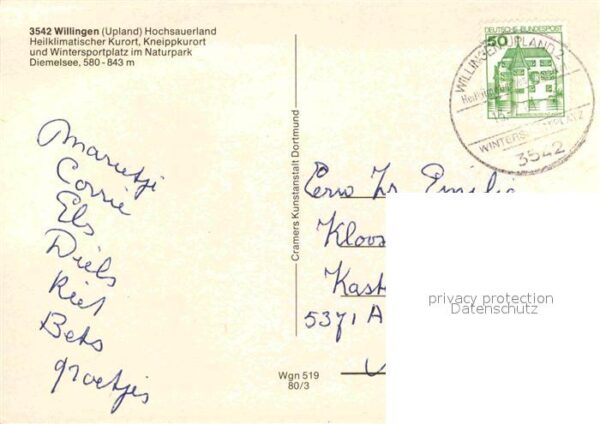 3542 Willingen (Upland) Hochsauerland
Heilklimatischer Kurort, Kneippkurort
und Wintersportplatz im Naturpark
Diemelsee, 580 - 843 m
Marietji
Corrie
Els
Diels
Riet
Bets
groetjes
Cramers Kunstanstalt Dortmund
Wgn 519
80/3
50 DEUTSCHE BUNDESPOST
WILLINGEN (UPLAND)
WINTERSPORTPLATZ
3542
Eerw Zr. Emilie
Kloos
Kast
5371 A
privacy protection
Datenschutz